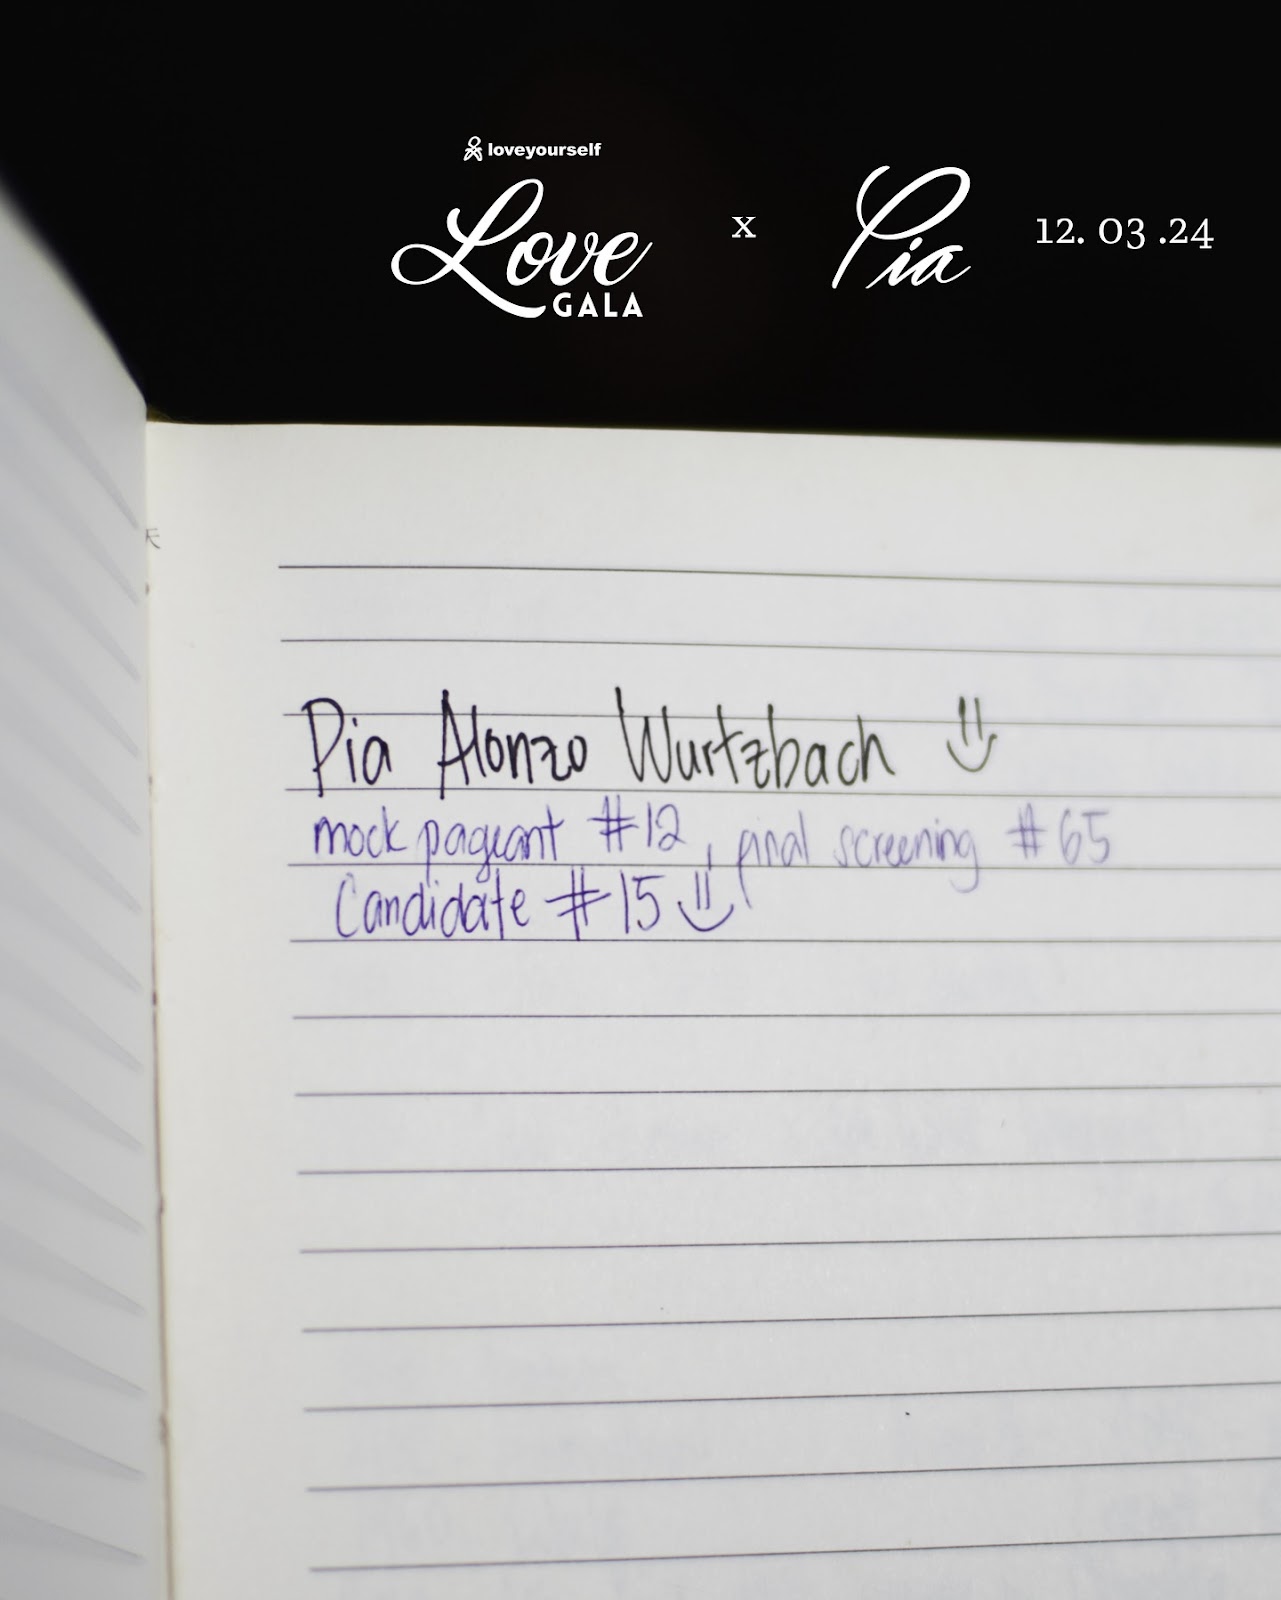 loveyourself
Love
GALA
x
Pia
12. 03 .24
Pia Alonzo Wurtzbach
mock pageant #12, final screening #65
Candidate #15